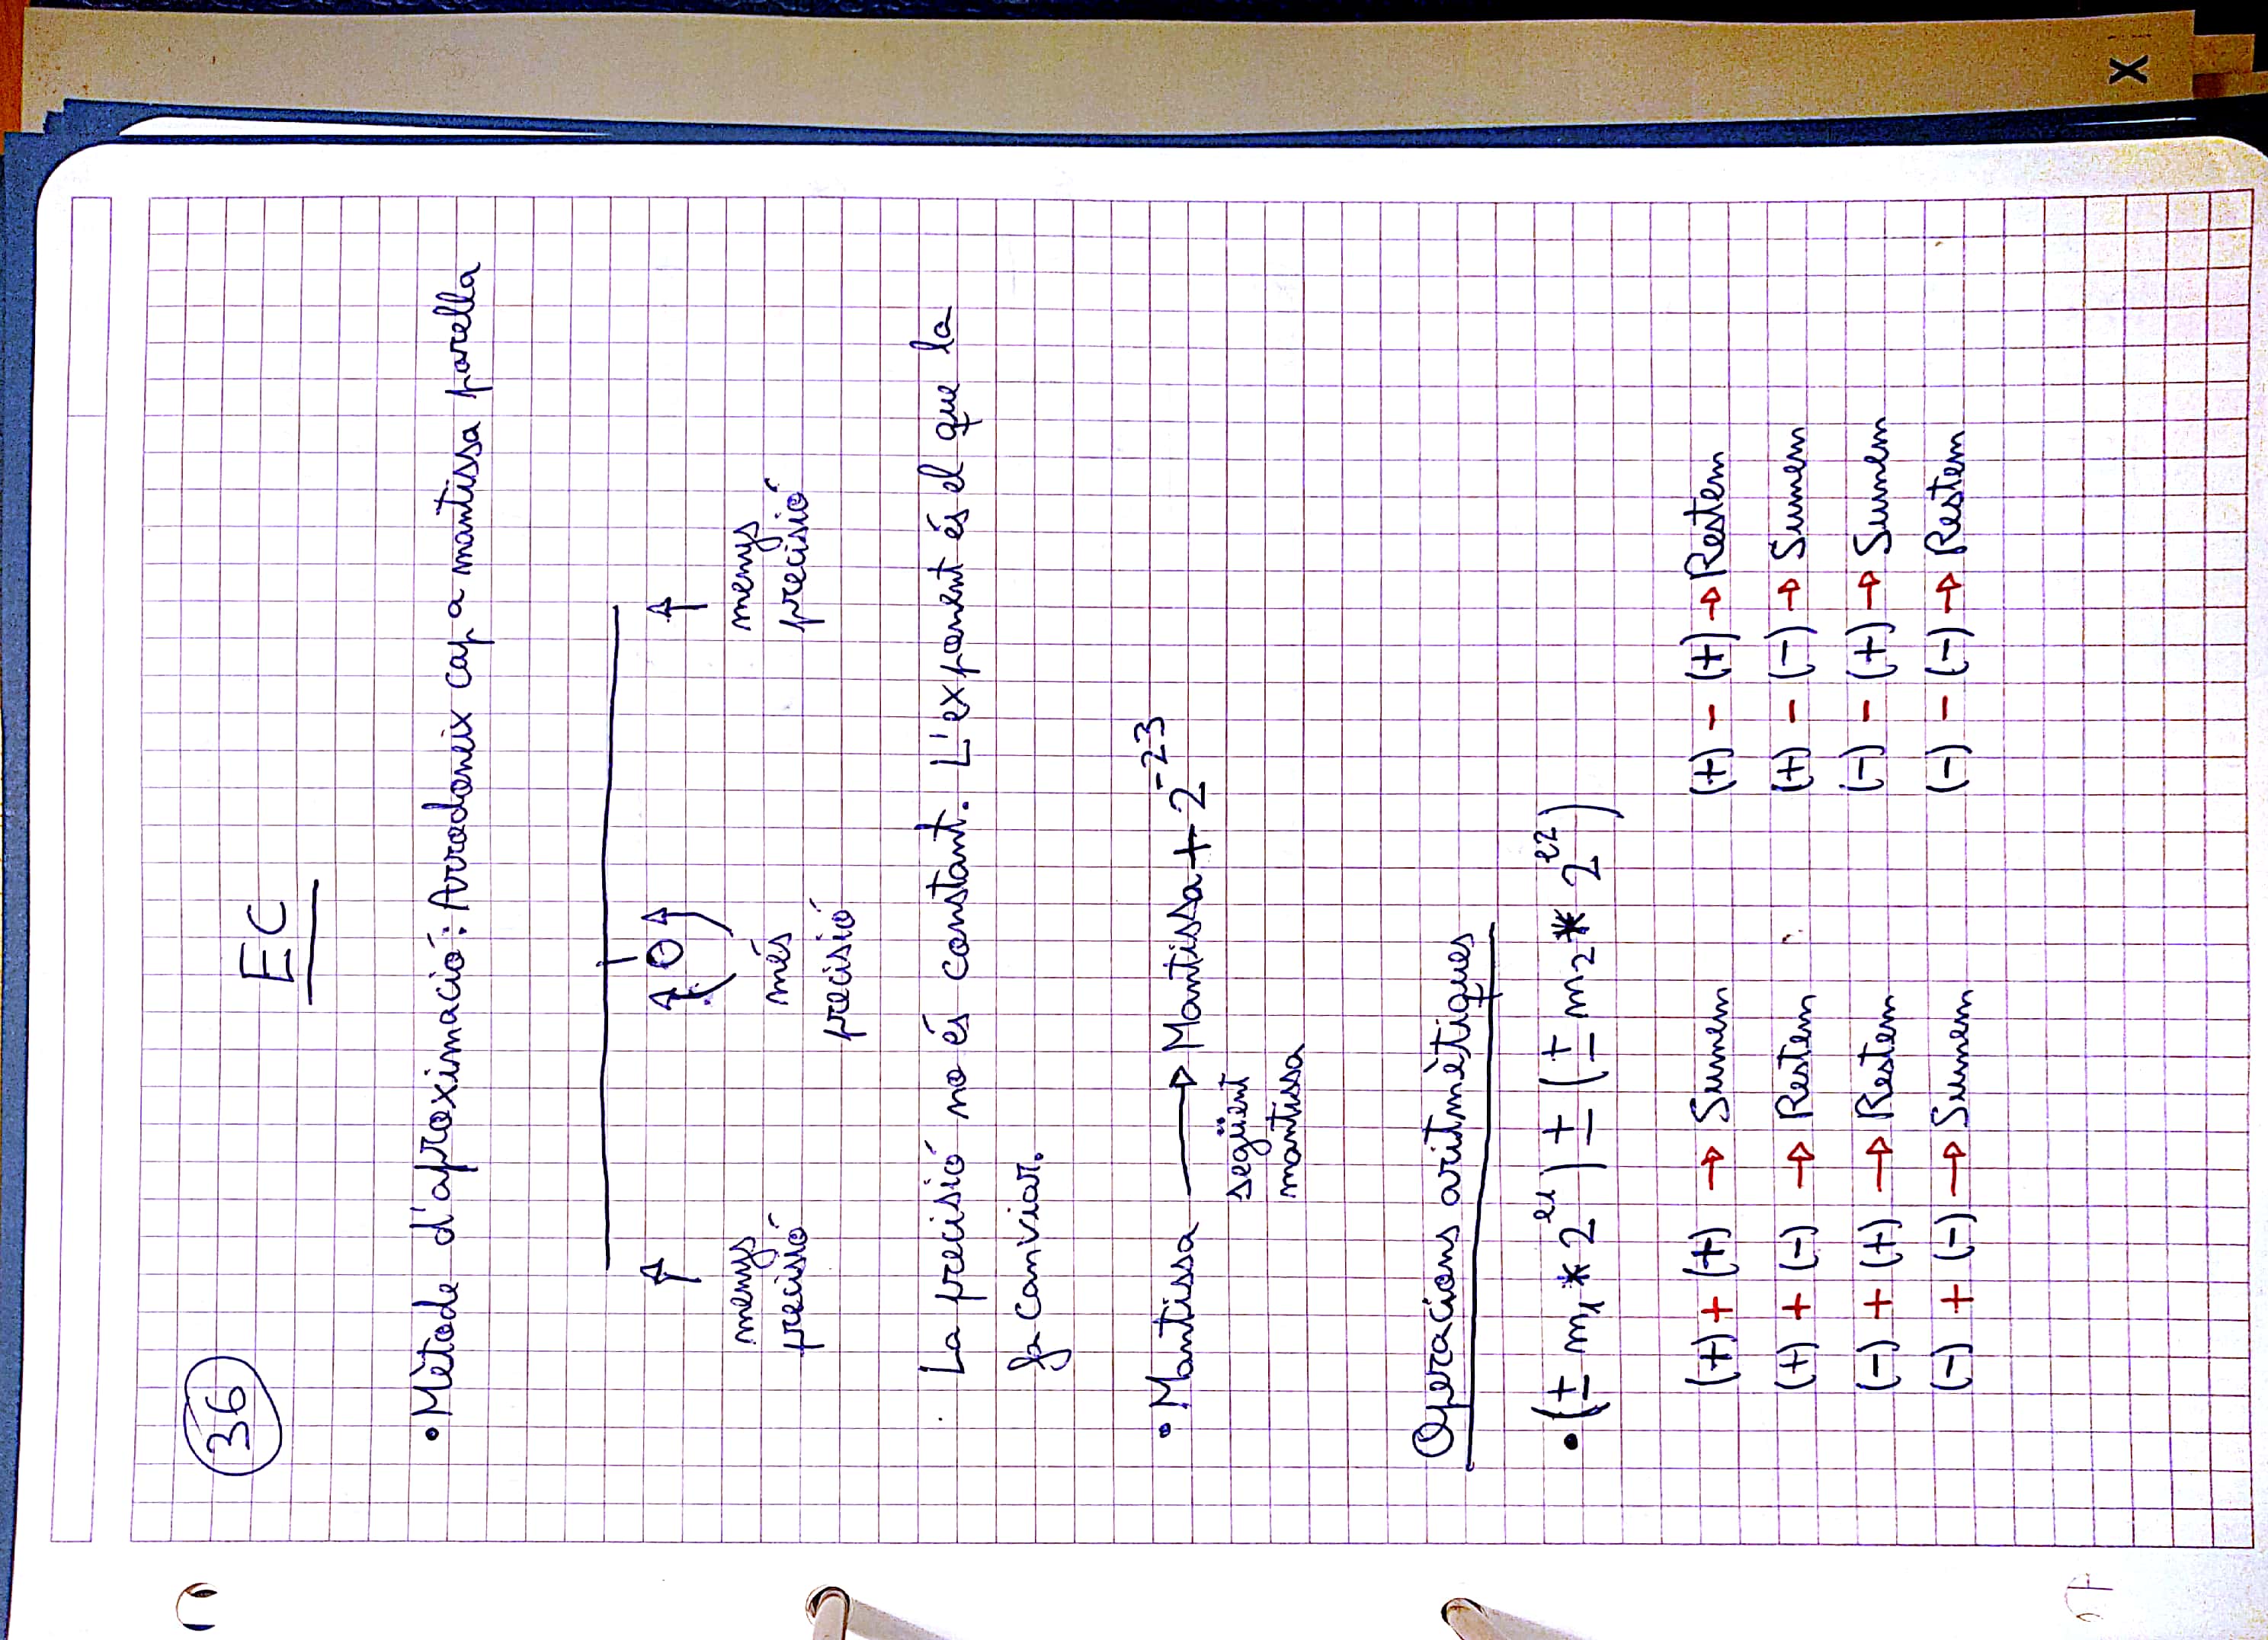 36
EC
• Mètode d'aproximació: Arrodoneix cap a mantissa parella
0
menys precisió
més precisió
menys precisió
La precisió no és constant. L'exponent és el que la
fa canviar.
• Mantissa → Mantissa + 2^-23
següent
mantissa
Operacions aritmètiques
• (± m1 * 2^e1) ± (± m2 * 2^e2)
(+) + (+) → Sumem
(+) - (+) → Restem
(+) + (-) → Restem
(+) - (-) → Sumem
(-) + (+) → Restem
(-) - (+) → Sumem
(-) + (-) → Sumem
(-) - (-) → Restem
X